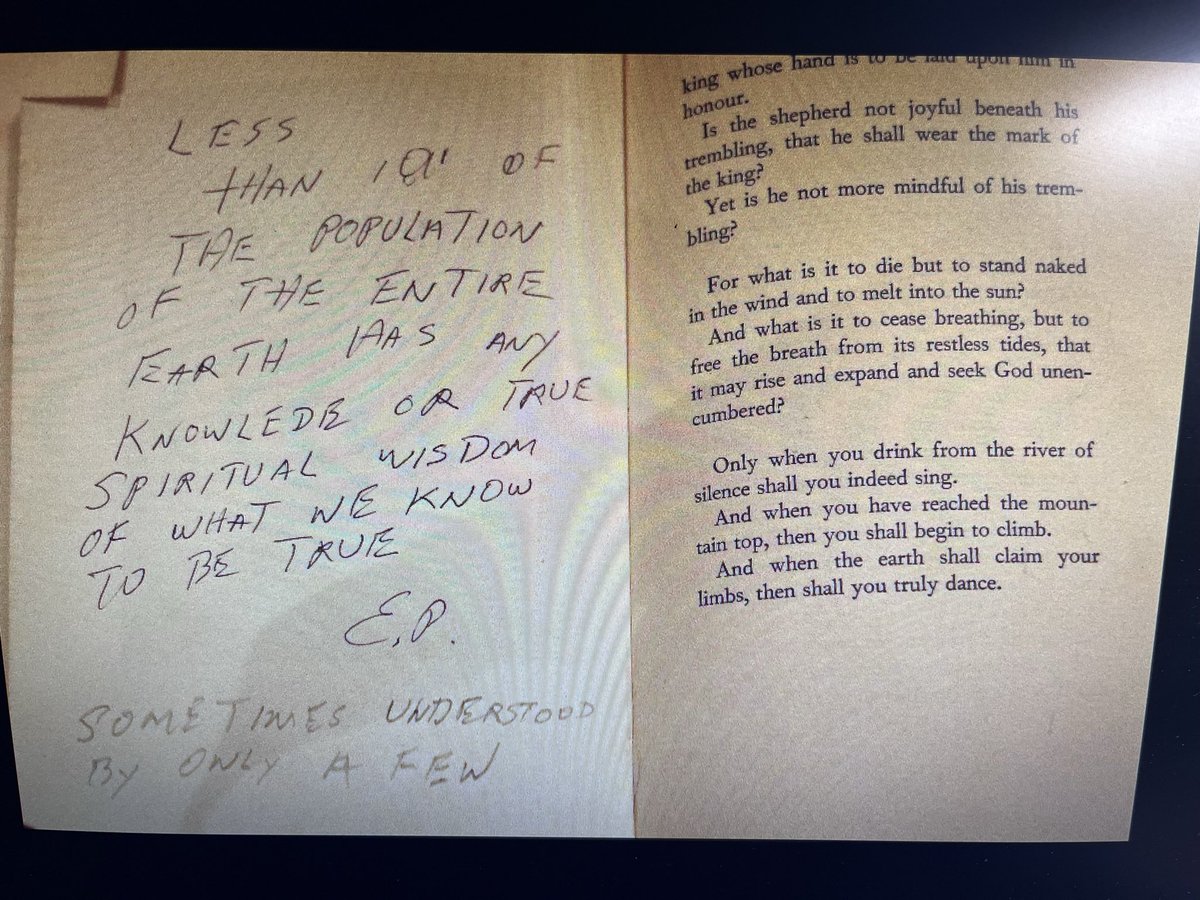 LESS
THAN OF
THE POPULATION
OF THE ENTIRE
EARTH HAS ANY
KNOWLEDE OR TRUE
SPIRITUAL WISDOM
OF WHAT WE KNOW
TO BE TRUE
E.P.
SOMETIMES UNDERSTOOD
BY ONLY A FEW
king whose hand is to be laid upon him in
honour.
Is the shepherd not joyful beneath his
trembling, that he shall wear the mark of
the king?
Yet is he not more mindful of his trem-
bling?
For what is it to die but to stand naked
in the wind and to melt into the sun?
And what is it to cease breathing, but to
free the breath from its restless tides, that
it may rise and expand and seek God unen-
cumbered?
Only when you drink from the river of
silence shall you indeed sing.
And when you have reached the moun-
tain top, then you shall begin to climb.
And when the earth shall claim your
limbs, then shall you truly dance.